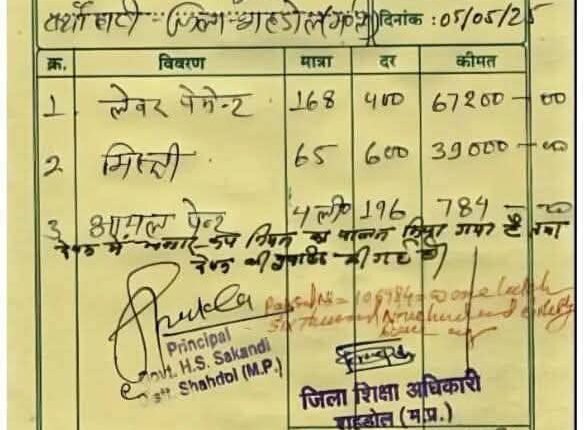 दिनांक : 05/05/25
क्र. विवरण मात्रा दर कीमत
1 लेवर पेमेन्ट 168 400 67200 - 00
2 मिस्त्री 65 600 39000 - 00
3 आयल पेन्ट 4 ली० 196 784 - 00
क्रय में भण्डार क्रय नियम का पालन किया गया है तथा
की गई है
Passed Rs = 106984 = 00 one lakh
Six thousand Nine hundred and eighty
four
Principal
Govt. H.S. Sakandi
Distt. Shahdol (M.P.)
जिला शिक्षा अधिकारी
शहडोल (म.प्र.)